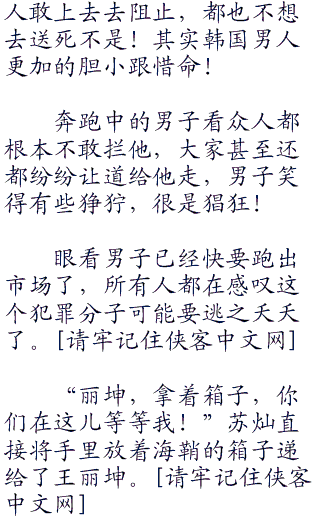 人敢上去去阻止，都也不想
去送死不是！其实韩国男人
更加的胆小跟惜命！
奔跑中的男子看众人都
根本不敢拦他，大家甚至还
都纷纷让道给他走，男子笑
得有些狰狞，很是猖狂！
眼看男子已经快要跑出
市场了，所有人都在感叹这
个犯罪分子可能要逃之夭夭
了。[请牢记住侠客中文网]
“丽坤，拿着箱子，你
们在这儿等等我！”苏灿直
接将手里放着海鞘的箱子递
给了王丽坤。[请牢记住侠客
中文网]